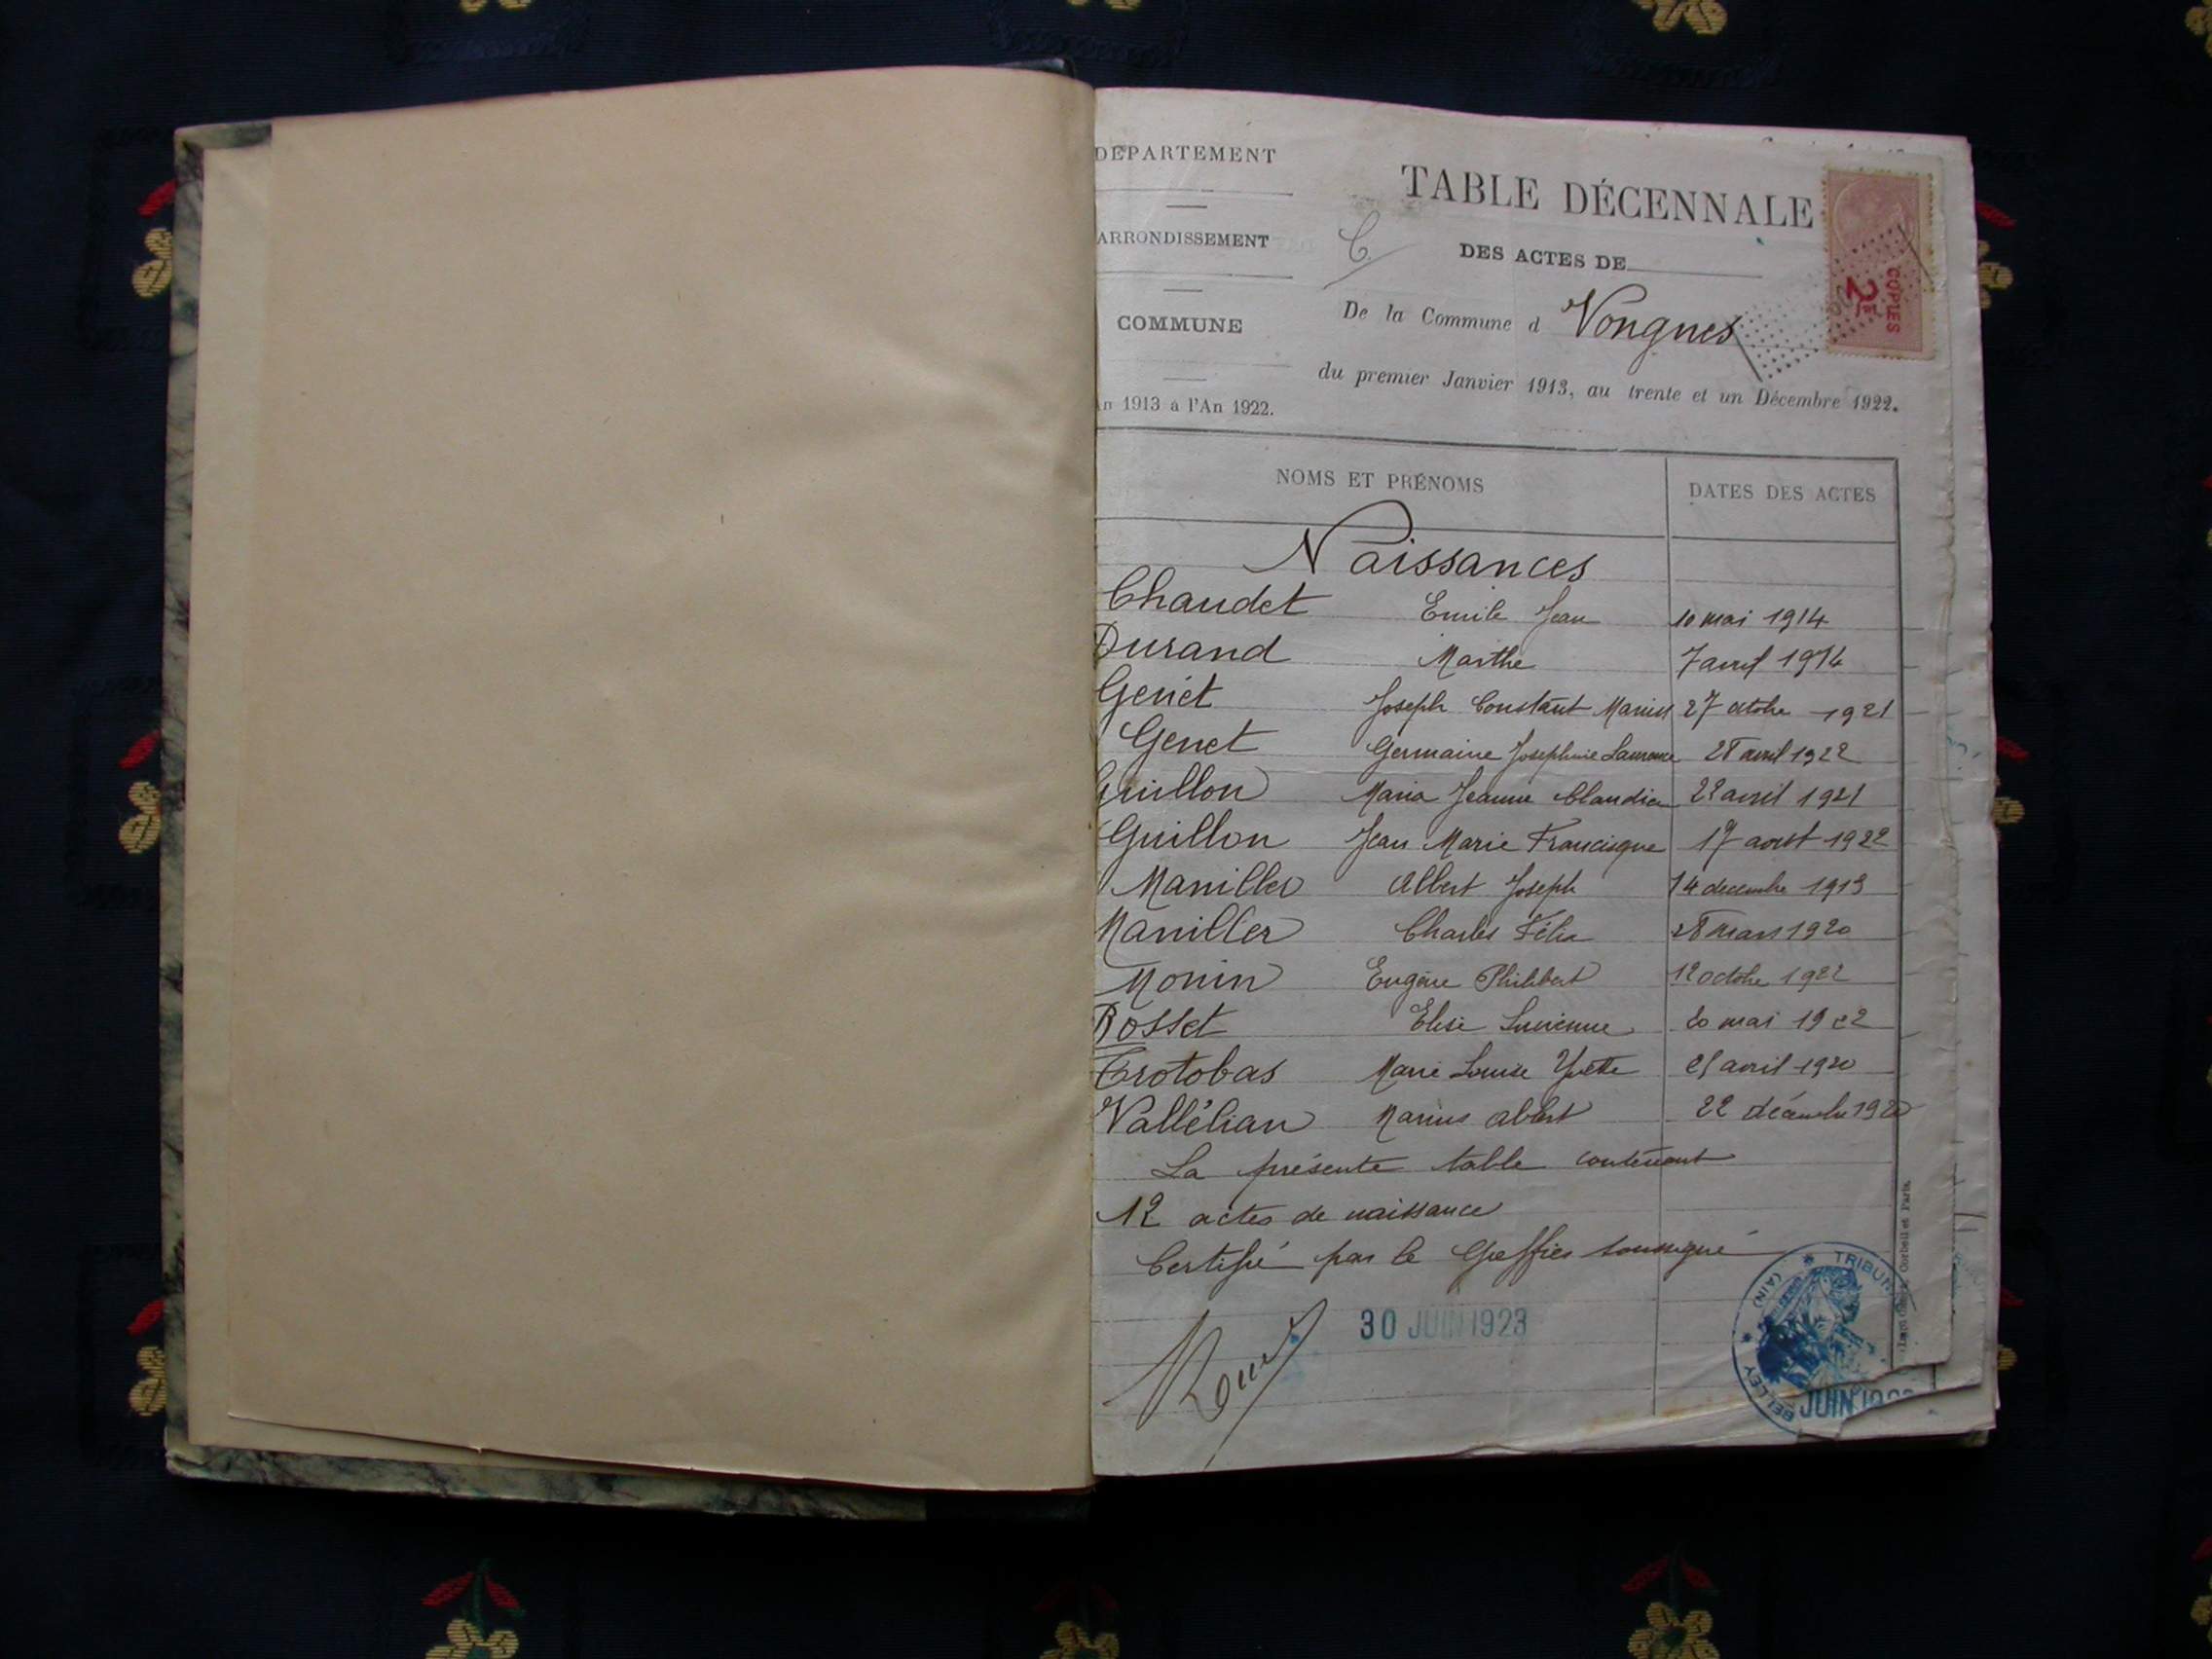 DÉPARTEMENT
ARRONDISSEMENT
COMMUNE
An 1913 à l'An 1922.
TABLE DÉCENNALE
DES ACTES DE
De la Commune d Vongnes
du premier Janvier 1913, au trente et un Décembre 1922.
COPIES
2F
NOMS ET PRÉNOMS DATES DES ACTES
Naissances
Chaudet Emile Jean 10 mai 1914
Durand Marthe 7 avril 1914
Genet Joseph Constant Marius 27 octobre 1921
Genet Germaine Josephine Laurence 28 avril 1922
Guillon Maria Jeanne Claudia 22 avril 1921
Guillon Jean Marie Francisque 17 aout 1922
Maniller Albert Joseph 14 decembre 1913
Maniller Charles Félix 28 mars 1920
Monin Eugène Philibert 12 octobre 1922
Rosset Elise Lucienne 20 mai 1922
Trotobas Marie Louise Yvette 25 avril 1920
Vallélian Marius Albert 22 décembre 1920
La présente table contenant
12 actes de naissance
Certifié par le Greffier soussigné
30 JUIN 1923
TRIBUNAL
BELLEY
(AIN)
JUIN
Corbeil et Paris.